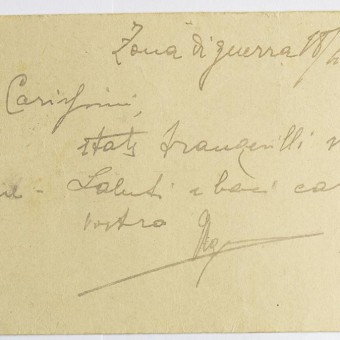 Zona di guerra 18/
Carissimi,
state tranquilli
Saluti e baci car
vostro Ugo